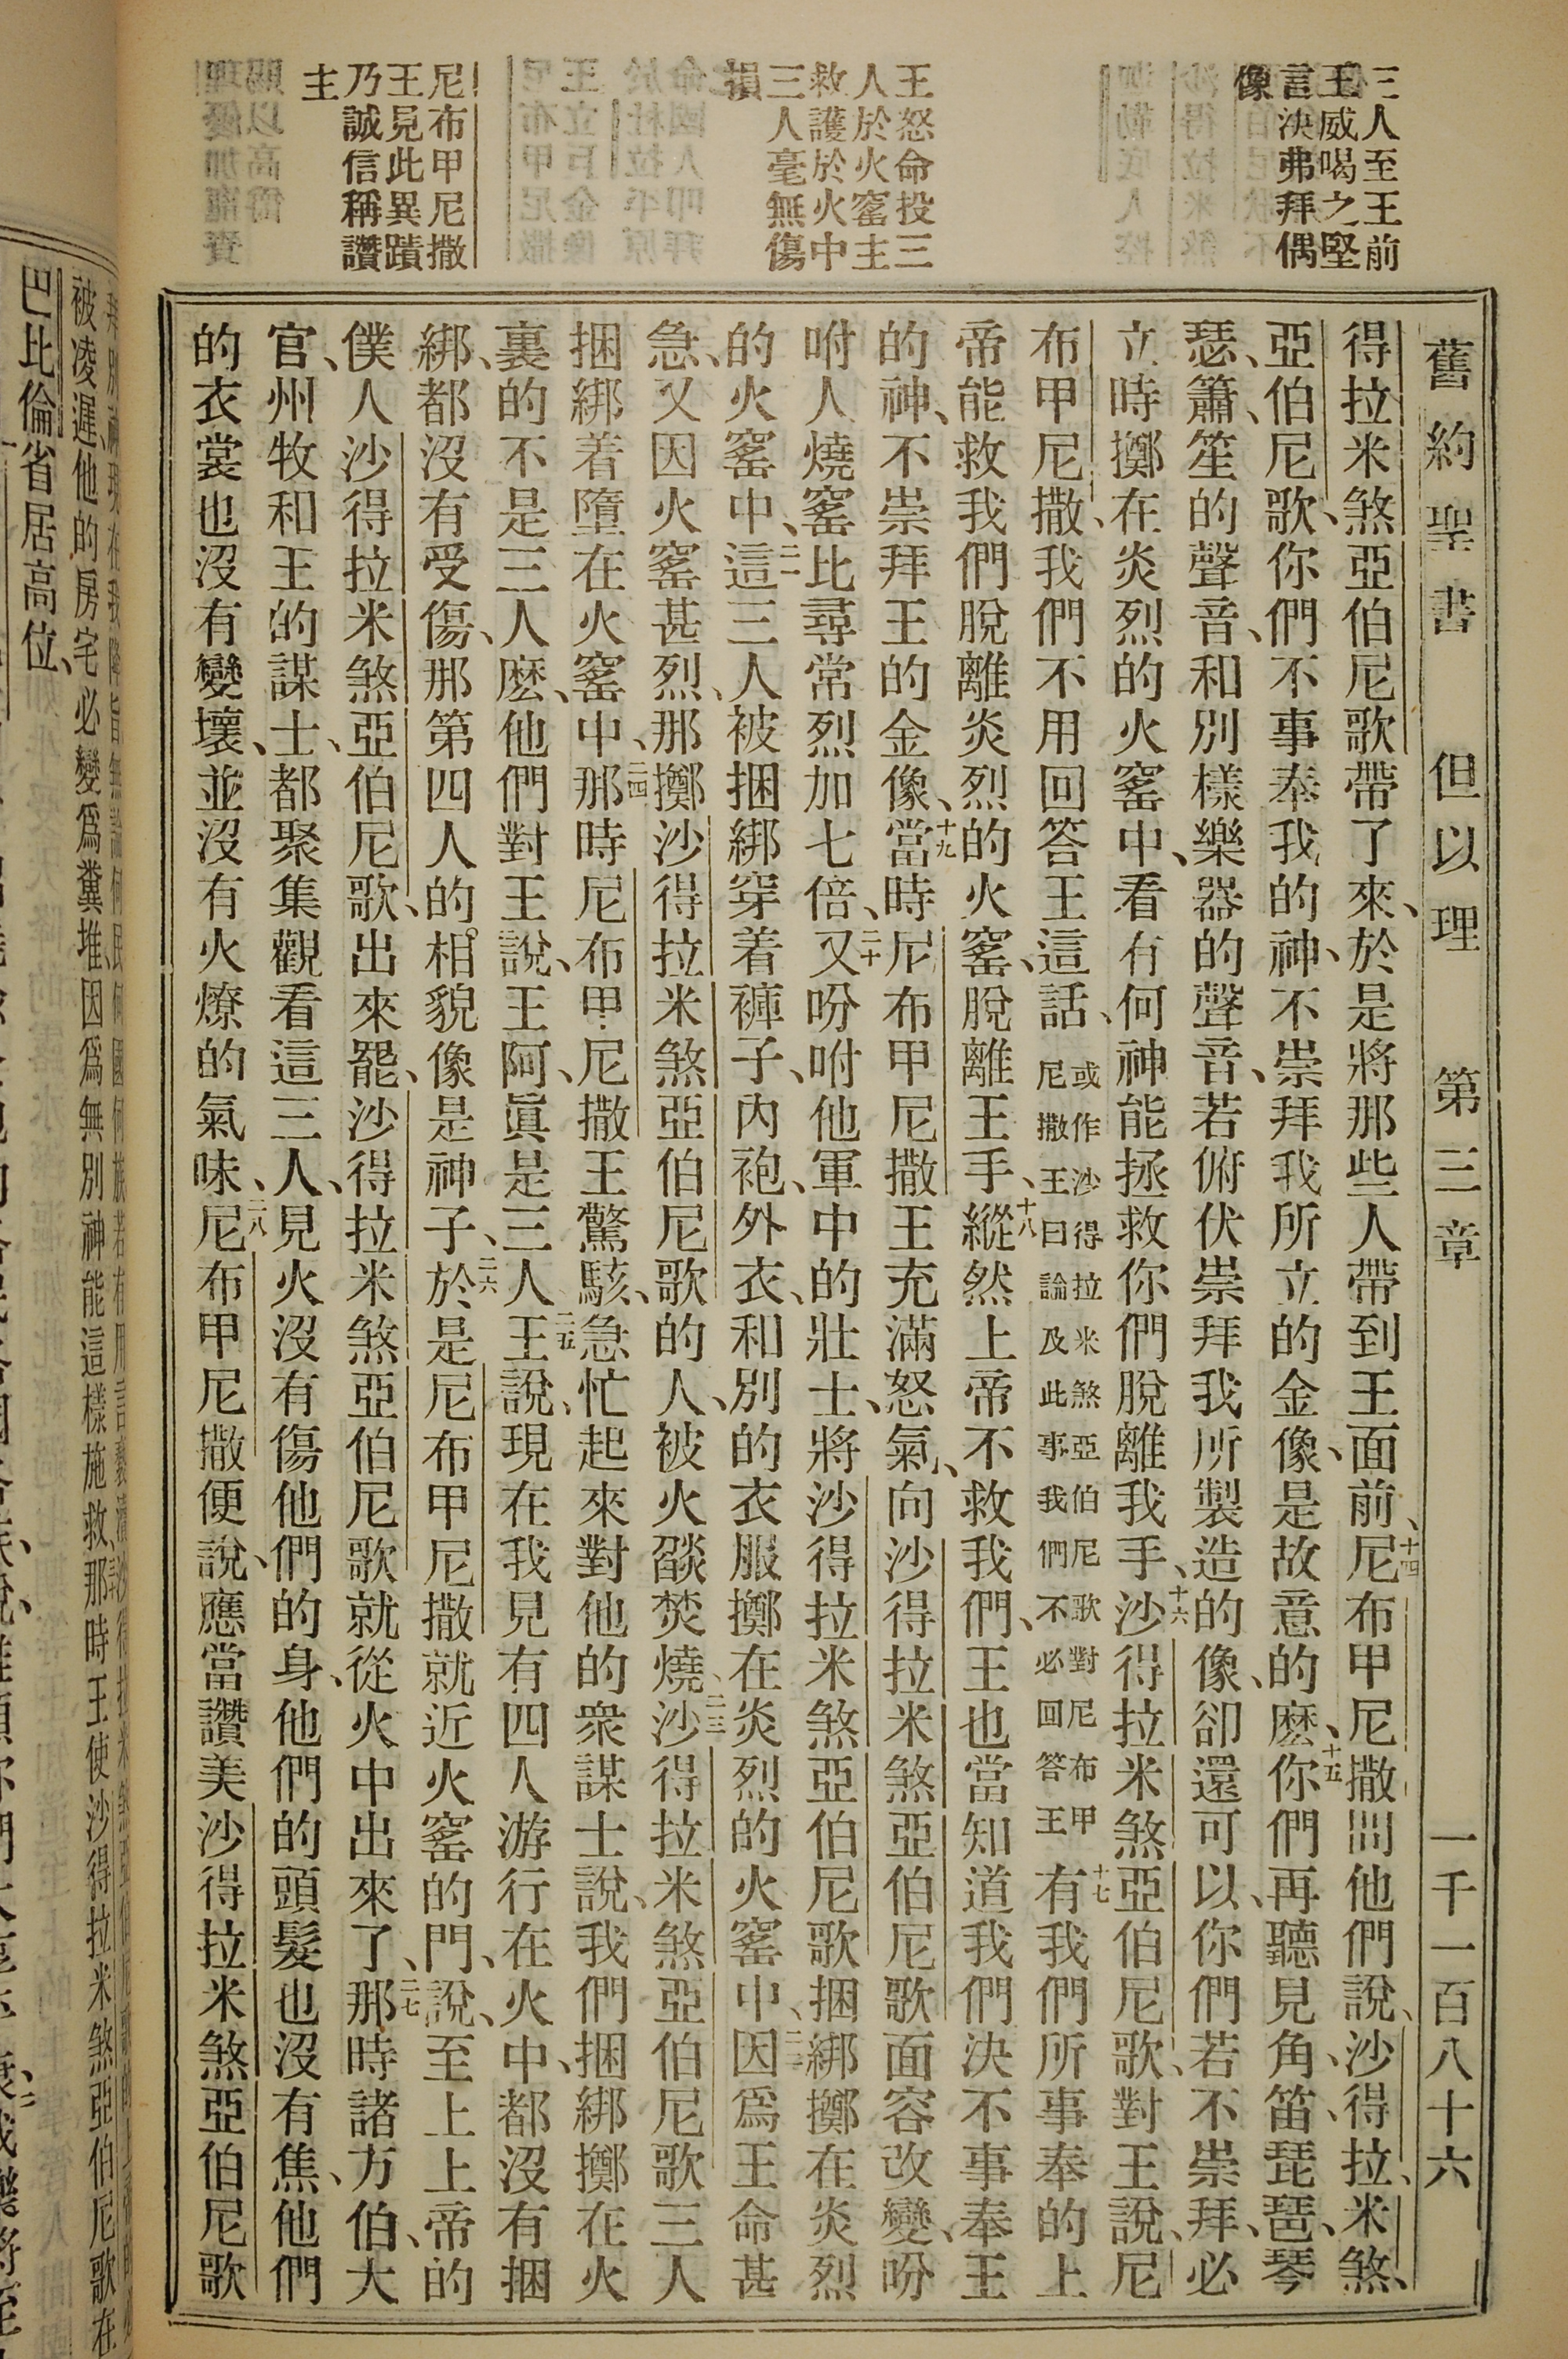 三人至王前
王威喝之堅
言決弗拜偶
像
王怒命投三
人於火窰主
救護於火中
三人毫無傷
損
尼布甲尼撒
王見此異蹟
乃誠信稱讚
主
舊約聖書 但以理 第三章 一千一百八十六
得拉米煞亞伯尼歌帶了來、於是將那些人帶到王面前、十四尼布甲尼撒問他們說、沙得拉、米煞、
亞伯尼歌、你們不事奉我的神、不崇拜我所立的金像、是故意的麽、十五你們再聽見角、笛、琵琶、琴
瑟、簫、笙的聲音、和別樣樂器的聲音、若俯伏崇拜我所製造的像、卻還可以、你們若不崇拜、必
立時擲在炎烈的火窰中、看有何神能拯救你們脫離我手、十六沙得拉米煞亞伯尼歌、對王說、尼
布甲尼撒、我們不用回答王這話、或作沙得拉米煞亞伯尼歌對尼布甲尼撒王曰論及此事我們不必回答王十七有我們所事奉的上
帝能救我們脫離炎烈的火窰、脫離王手、十八縱然上帝不救我們、王也當知道我們決不事奉王
的神、不崇拜王的金像、十九當時尼布甲尼撒王充滿怒氣、向沙得拉米煞亞伯尼歌面容改變、吩
咐人燒窰比尋常烈加七倍、二十又吩咐他軍中的壯士、將沙得拉米煞亞伯尼歌捆綁擲在炎烈
的火窰中、二一這三人被捆綁穿着褲子、內袍、外衣、和別的衣服擲在炎烈的火窰中、二二因爲王命甚
急、又因火窰甚烈、那擲沙得拉米煞亞伯尼歌的人、被火燄焚燒、二三沙得拉米煞亞伯尼歌三人
捆綁着墮在火窰中、二四那時尼布甲尼撒王驚駭、急忙起來對他的衆謀士說、我們捆綁擲在火
裏的不是三人麽、他們對王說、王阿、眞是三人、二五王說、現在我見有四人游行在火中、都沒有捆
綁、都沒有受傷、那第四人的相貌像是神子、二六於是尼布甲尼撒就近火窰的門、說、至上上帝的
僕人沙得拉米煞亞伯尼歌、出來罷、沙得拉米煞亞伯尼歌就從火中出來了、二七那時諸方伯、大
官、州牧和王的謀士、都聚集觀看這三人、見火沒有傷他們的身、他們的頭髮也沒有焦、他們
的衣裳也沒有變壞、並沒有火燎的氣味、二八尼布甲尼撒便說、應當讚美沙得拉米煞亞伯尼歌
被凌遲、他的房宅必變爲糞堆、因爲無別神能這樣施救、三十那時王使沙得拉米煞亞伯尼歌在
巴比倫省居高位、